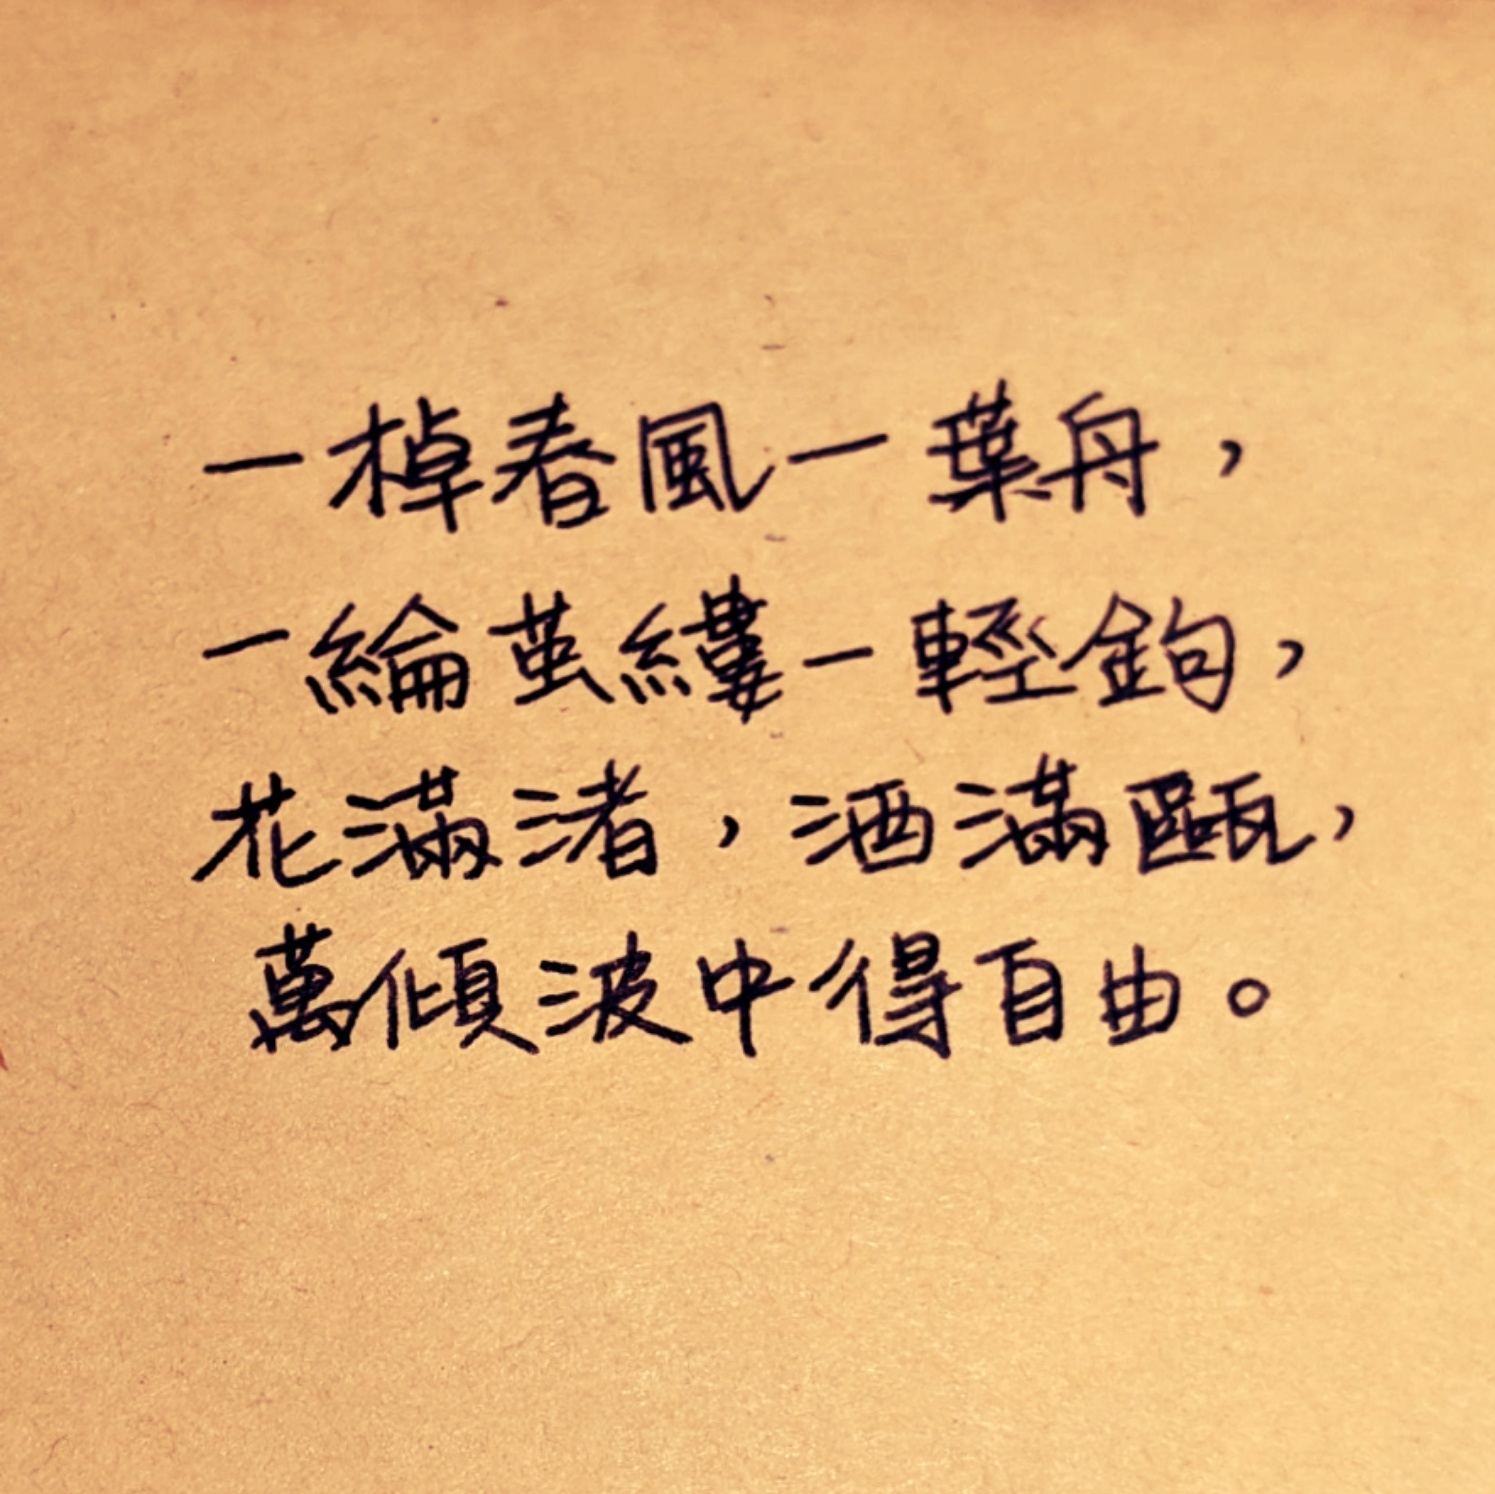 一棹春風一葉舟，
一綸茧縷一輕鉤，
花滿渚，酒滿甌，
萬傾波中得自由。